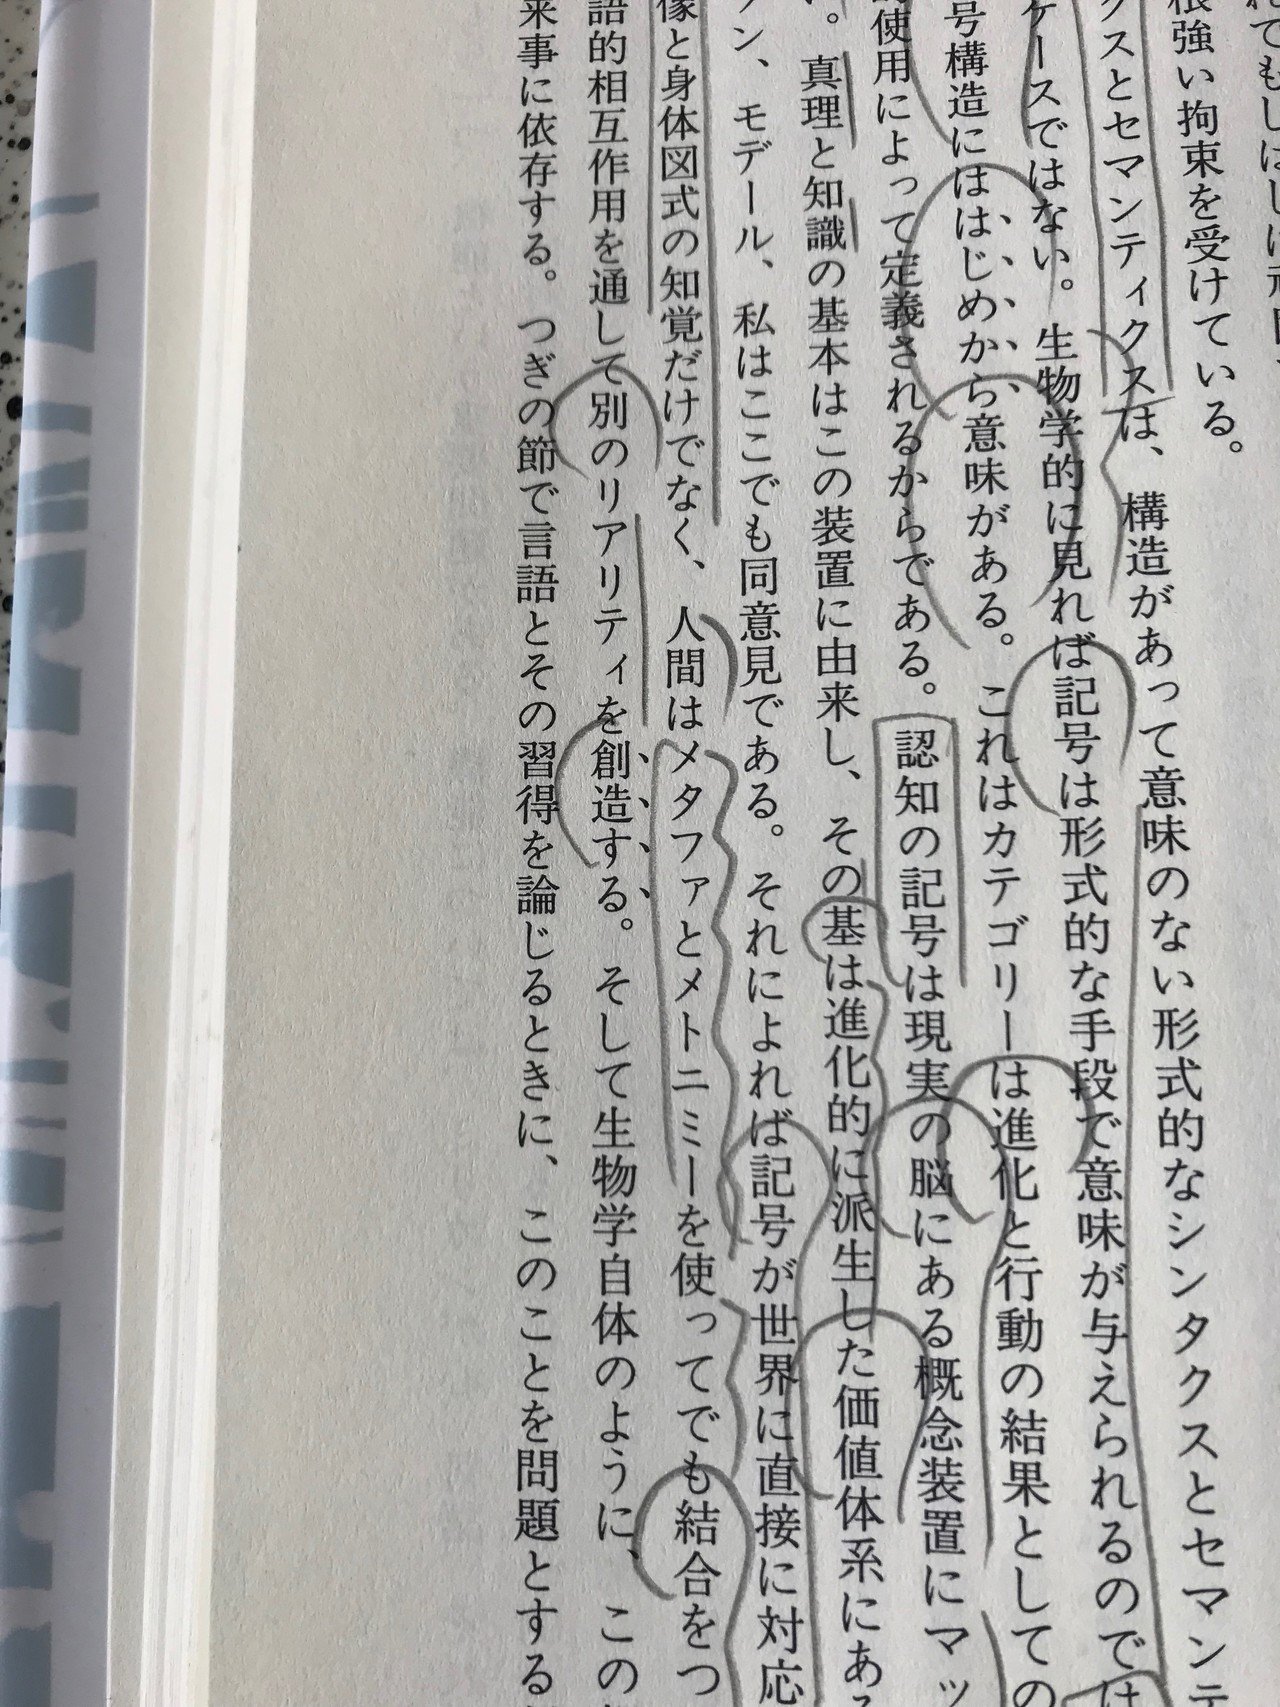 れてもしばしば
根強い拘束を受けている。
クスとセマンティクスは、構造があって意味のない形式的なシンタクスとセマンテ
ケースではない。生物学的に見れば記号は形式的な手段で意味が与えられるのでは
号構造にははじめから意味がある。これはカテゴリーは進化と行動の結果としての
使用によって定義されるからである。認知の記号は現実の脳にある概念装置にマッ
い。真理と知識の基本はこの装置に由来し、その基は進化的に派生した価値体系にあ
ン、モデール、私はここでも同意見である。それによれば記号が世界に直接に対応
像と身体図式の知覚だけでなく、人間はメタファとメトニミーを使ってでも結合をつ
語的相互作用を通して別のリアリティを創造する。そして生物学自体のように、この
来事に依存する。つぎの節で言語とその習得を論じるときに、このことを問題とする